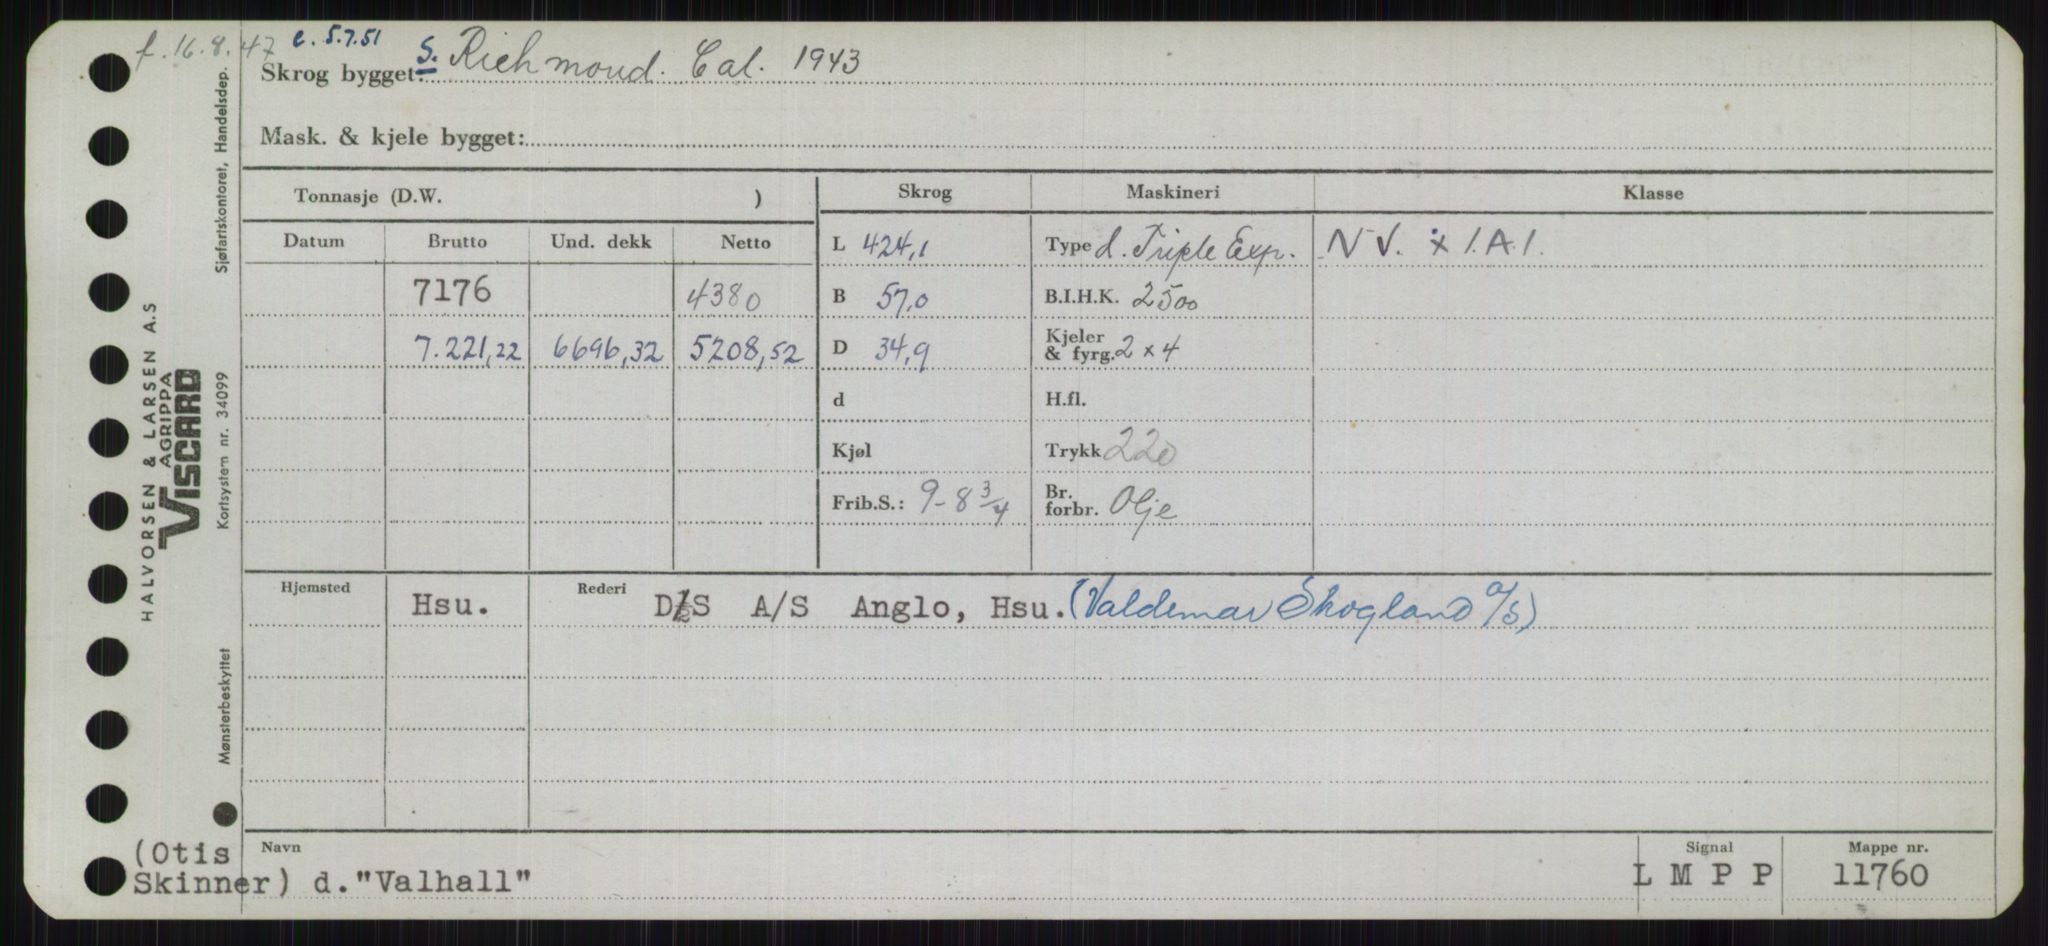 f. 16.8.47 e. 5.7.51
Skrog bygget: S. Richmond. Cal. 1943
Mask. & kjele bygget:
Tonnasje (D.W. ) Skrog Maskineri Klasse
Datum Brutto Und. dekk Netto L 424,1 Type d. Triple Exp. NV. x 1.A.1.
7176 4380 B 57,0 B.I.H.K. 2500
7.221,22 6696,32 5208,52 D 34,9 Kjeler & fyrg. 2 x 4
d H.fl.
Kjøl Trykk 220
Frib.S.: 9-8 3/4 Br. forbr. Olje
Hjemsted Hsu. Rederi D/S A/S Anglo, Hsu. (Valdemar Skogland A/S)
(Otis Skinner) Navn d."Valhall" Signal L M P P Mappe nr. 11760
HALVORSEN & LARSEN A.S
AGRIPPA
VISCARD
Sjøfartskontoret, Handelsdep.
Kortsystem nr. 34099
Mønsterbeskyttet